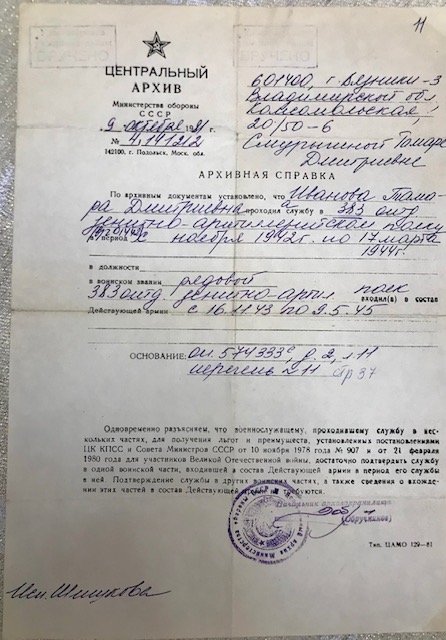 11
ЦЕНТРАЛЬНЫЙ
АРХИВ
Министерства обороны
СССР
9 октября 1981 г.
№ 4/141212
142100, г. Подольск, Моск. обл.
601400, г. Вязники-3
Владимирской обл
Комсомольская
20/50-6
Смурыгиной Тамаре
Дмитриевне
АРХИВНАЯ СПРАВКА
По архивным документам установлено, что Иванова Тама-
ра Дмитриевна проходила службу в 383 отд
зенитно-артиллерийском полку
в период с ноября 1942г. по 17 марта
1944г.
в должности
в воинском звании рядовой
383 отд зенитно-артил полк входил(а) в состав
Действующей армии с 16.11.43 по 9.5.45
ОСНОВАНИЕ: оп. 574333с, д. 2, л. 11
перечень №11 стр 37
Одновременно разъясняем, что военнослужащему, проходившему службу в нес-
кольких частях, для получения льгот и преимуществ, установленных постановлениями
ЦК КПСС и Совета Министров СССР от 10 ноября 1978 года № 907 и от 21 февраля
1980 года для участников Великой Отечественной войны, достаточно подтвердить службу
в одной воинской части, входившей в состав Действующей армии в период его службы
в ней. Подтверждение службы в других воинских частях, а также сведения о вхожде-
нии этих частей в состав Действующей армии не требуются.
Начальник архивохранилища
Тип. ЦАМО 129—81
Исп. Шишукова